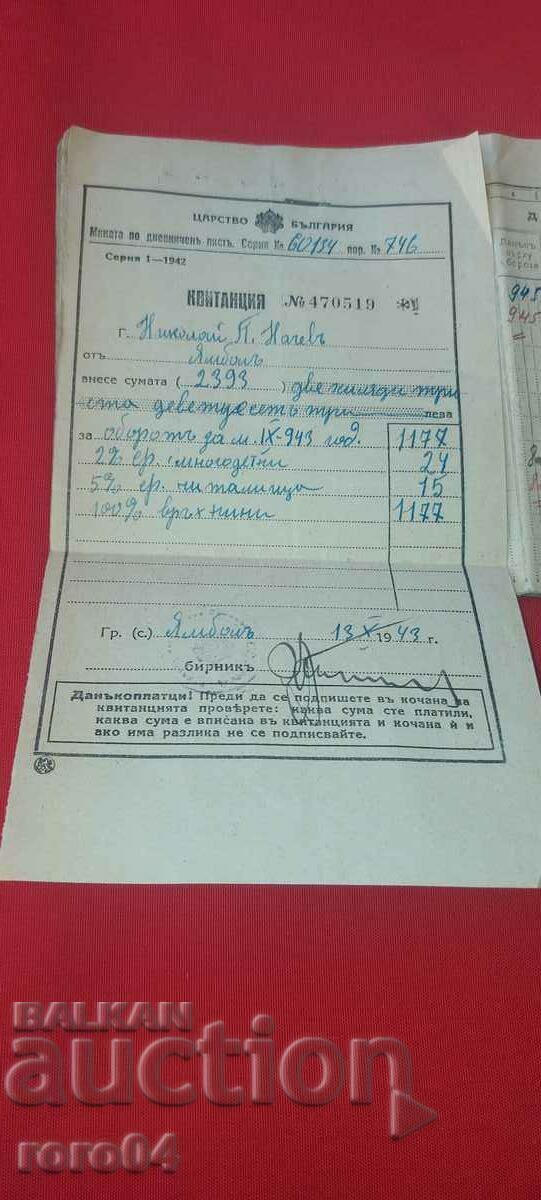 ЦАРСТВО БЪЛГАРИЯ
Мината по дневниченъ листъ. Серия № 60154 пор. № 746
Серия 1—1942
КВИТАНЦИЯ № 470519
Г. Николай П. Начевъ
отъ Ямболъ
внесе сумата ( 2393 ) две хиляди три
ста деветдесетъ три лева
за оборотъ за м. IX-943 год. 1177
2% ф. многодетни 24
5% ф. читалища 15
100% връхнини 1177
Гр. (с.) Ямболъ 13 X 1943 г.
бирникъ
Данъкоплатци! Преди да се подпишете въ кочана на
квитанцията проверете: каква сума сте платили,
каква сума е вписана въ квитанцията и кочана ѝ и
ако има разлика не се подписвайте.
Д
върху
945
945
BALKAN
auction
roro04